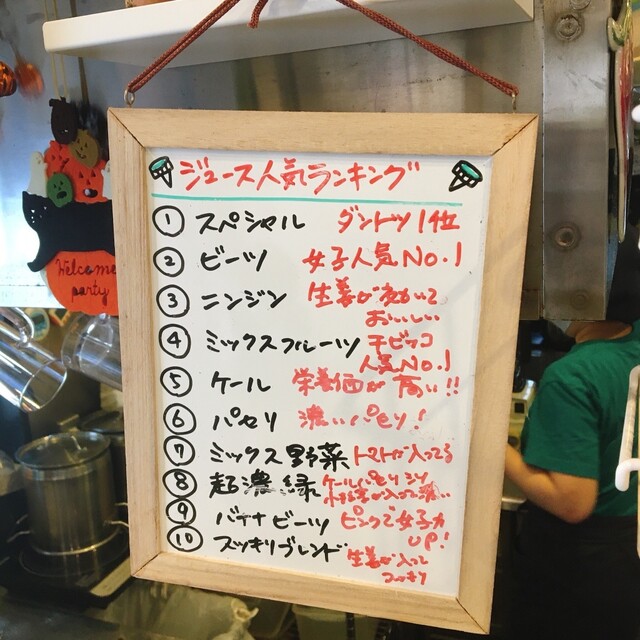 ジュース人気ランキング
① スペシャル ダントツ1位
② ビーツ 女子人気No.1
③ ニンジン 生姜が効いて
おいしい
④ ミックスフルーツ チビッコ
人気No.1
⑤ ケール 栄養価が高い!!
⑥ パセリ 濃いパセリ!
⑦ ミックス野菜 トマトが入ってる
⑧ 超濃緑 ケールパセリ
が入って濃い
⑨ バナナビーツ ピンクで女子力
UP!
⑩ スッキリブレンド 生姜が入って
スッキリ
Welcome
party